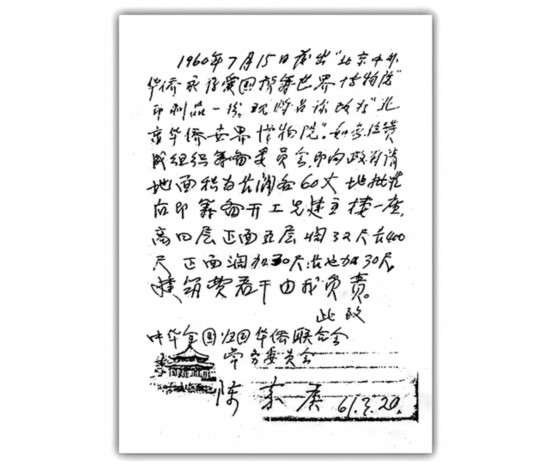 1960年7月15日发出“北京中外
华侨永存爱国招筹世界博物院”
印刷品一份，现将名称改为“北
京华侨世界博物院”。如蒙信赞
成组织筹备委员会，即向政府请
地面积为长阔各60丈 地批准
后即筹备开工先建主楼一座，
高四层正面五层阔32尺长400
尺 正面阔加30尺长也加30尺，
建筑费若干由我负责。
此致
中华全国归国华侨联合会
常务委员会
陈嘉庚 61.3.20.